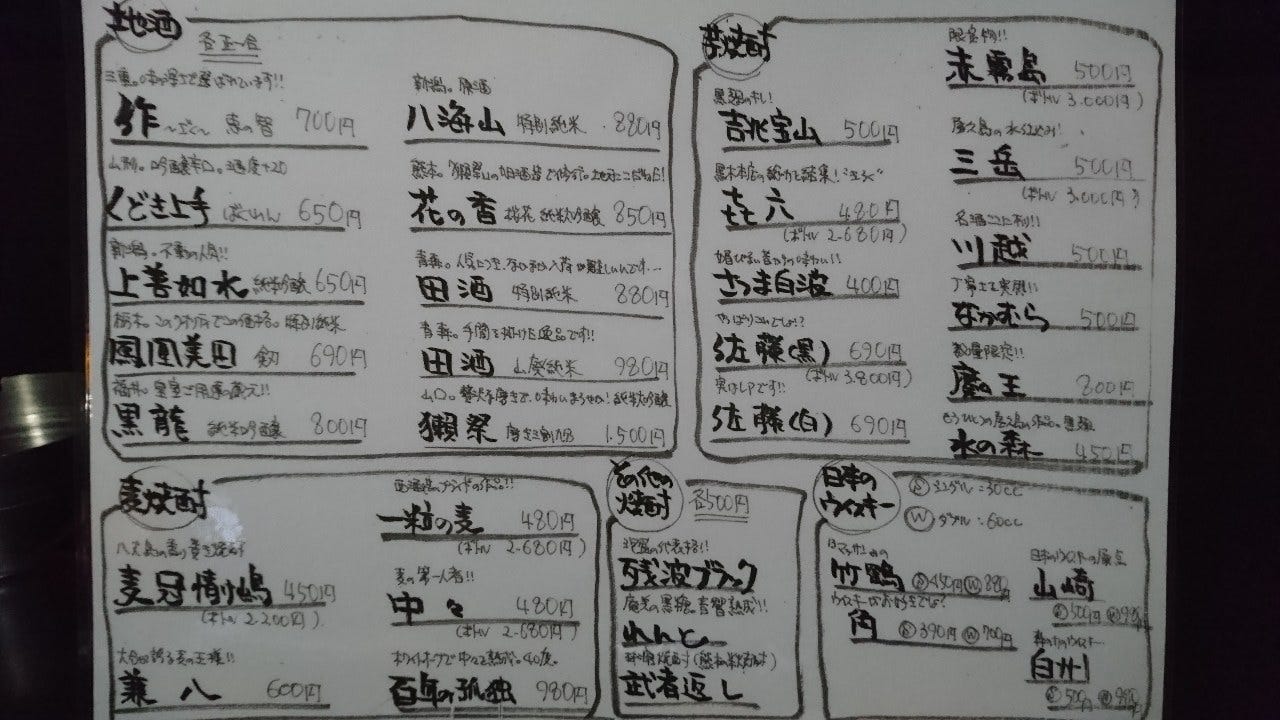 地酒
各正一合
三重。
作 〜ざく〜 恵の智 700円
山形。吟醸辛口。酒度+20
くどき上手 ばくれん 650円
新潟。不動の人気!!
上善如水 純米吟醸 650円
栃木。このクオリティでこの価格。特別純米
鳳凰美田 剱 690円
福井。皇室ご用達の蔵元!!
黒龍 純米吟醸 800円
新潟。原酒
八海山 特別純米 880円
熊本。
花の香 桜花 純米大吟醸 850円
青森。
田酒 特別純米 880円
青森。手間を掛けた逸品です!!
田酒 山廃純米 980円
山口。
獺祭 磨き三割九分 1.500円
芋焼酎
黒麹の
吉兆宝山 500円
黒木本店の
㐂六 480円
(ボトル 2.680円)
さつま白波 400円
やっぱりコレでしょ!?
佐藤(黒) 690円
(ボトル 3.800円)
佐藤(白) 690円
限定物!!
赤霧島 500円
(ボトル 3.000円)
屋久島の水仕込み!
三岳 500円
(ボトル 3.000円)
川越 500円
丁寧さを実現!!
なかむら 500円
数量限定!!
魔王 800円
水の森 450円
麦焼酎
麦冠情け嶋 450円
(ボトル 2.200円)
大分が誇る麦の王様!!
兼八 600円
一粒の麦 480円
(ボトル 2.680円)
麦の第一人者!!
中々 480円
(ボトル 2.680円)
百年の孤独 980円
その他の焼酎
各500円
残波ブラック
れんと
武者返し
日本のウイスキー
Ⓢシングル:30cc
Ⓦダブル:60cc
竹鶴 Ⓢ450円 Ⓦ880
角 Ⓢ390円 Ⓦ700円
日本のウイスキーの原点
山崎
白州